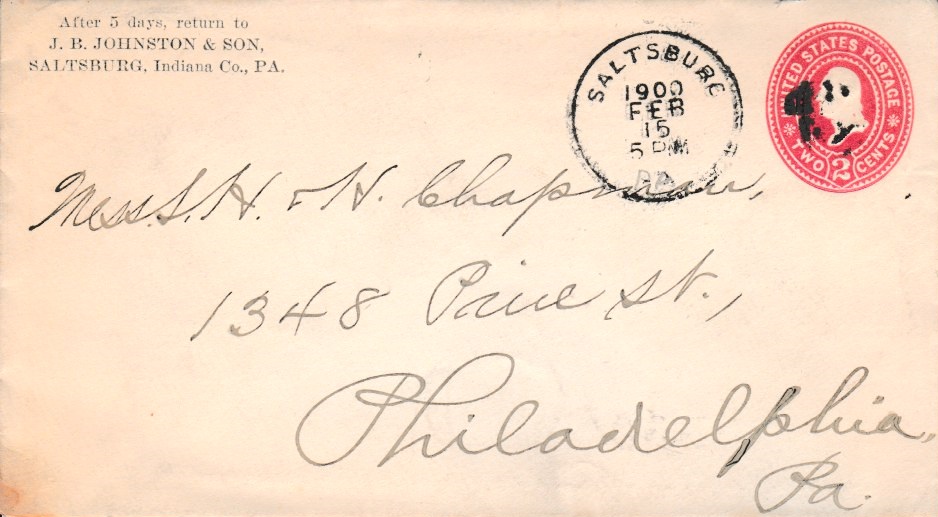 After 5 days, return to
J. B. JOHNSTON & SON,
SALTSBURG, Indiana Co., PA.
SALTSBURG
1900
FEB
15
5 PM
PA
UNITED STATES POSTAGE
TWO 2 CENTS
Mess. J. H. & H. Chapman,
1348 Pine St.,
Philadelphia,
Pa.